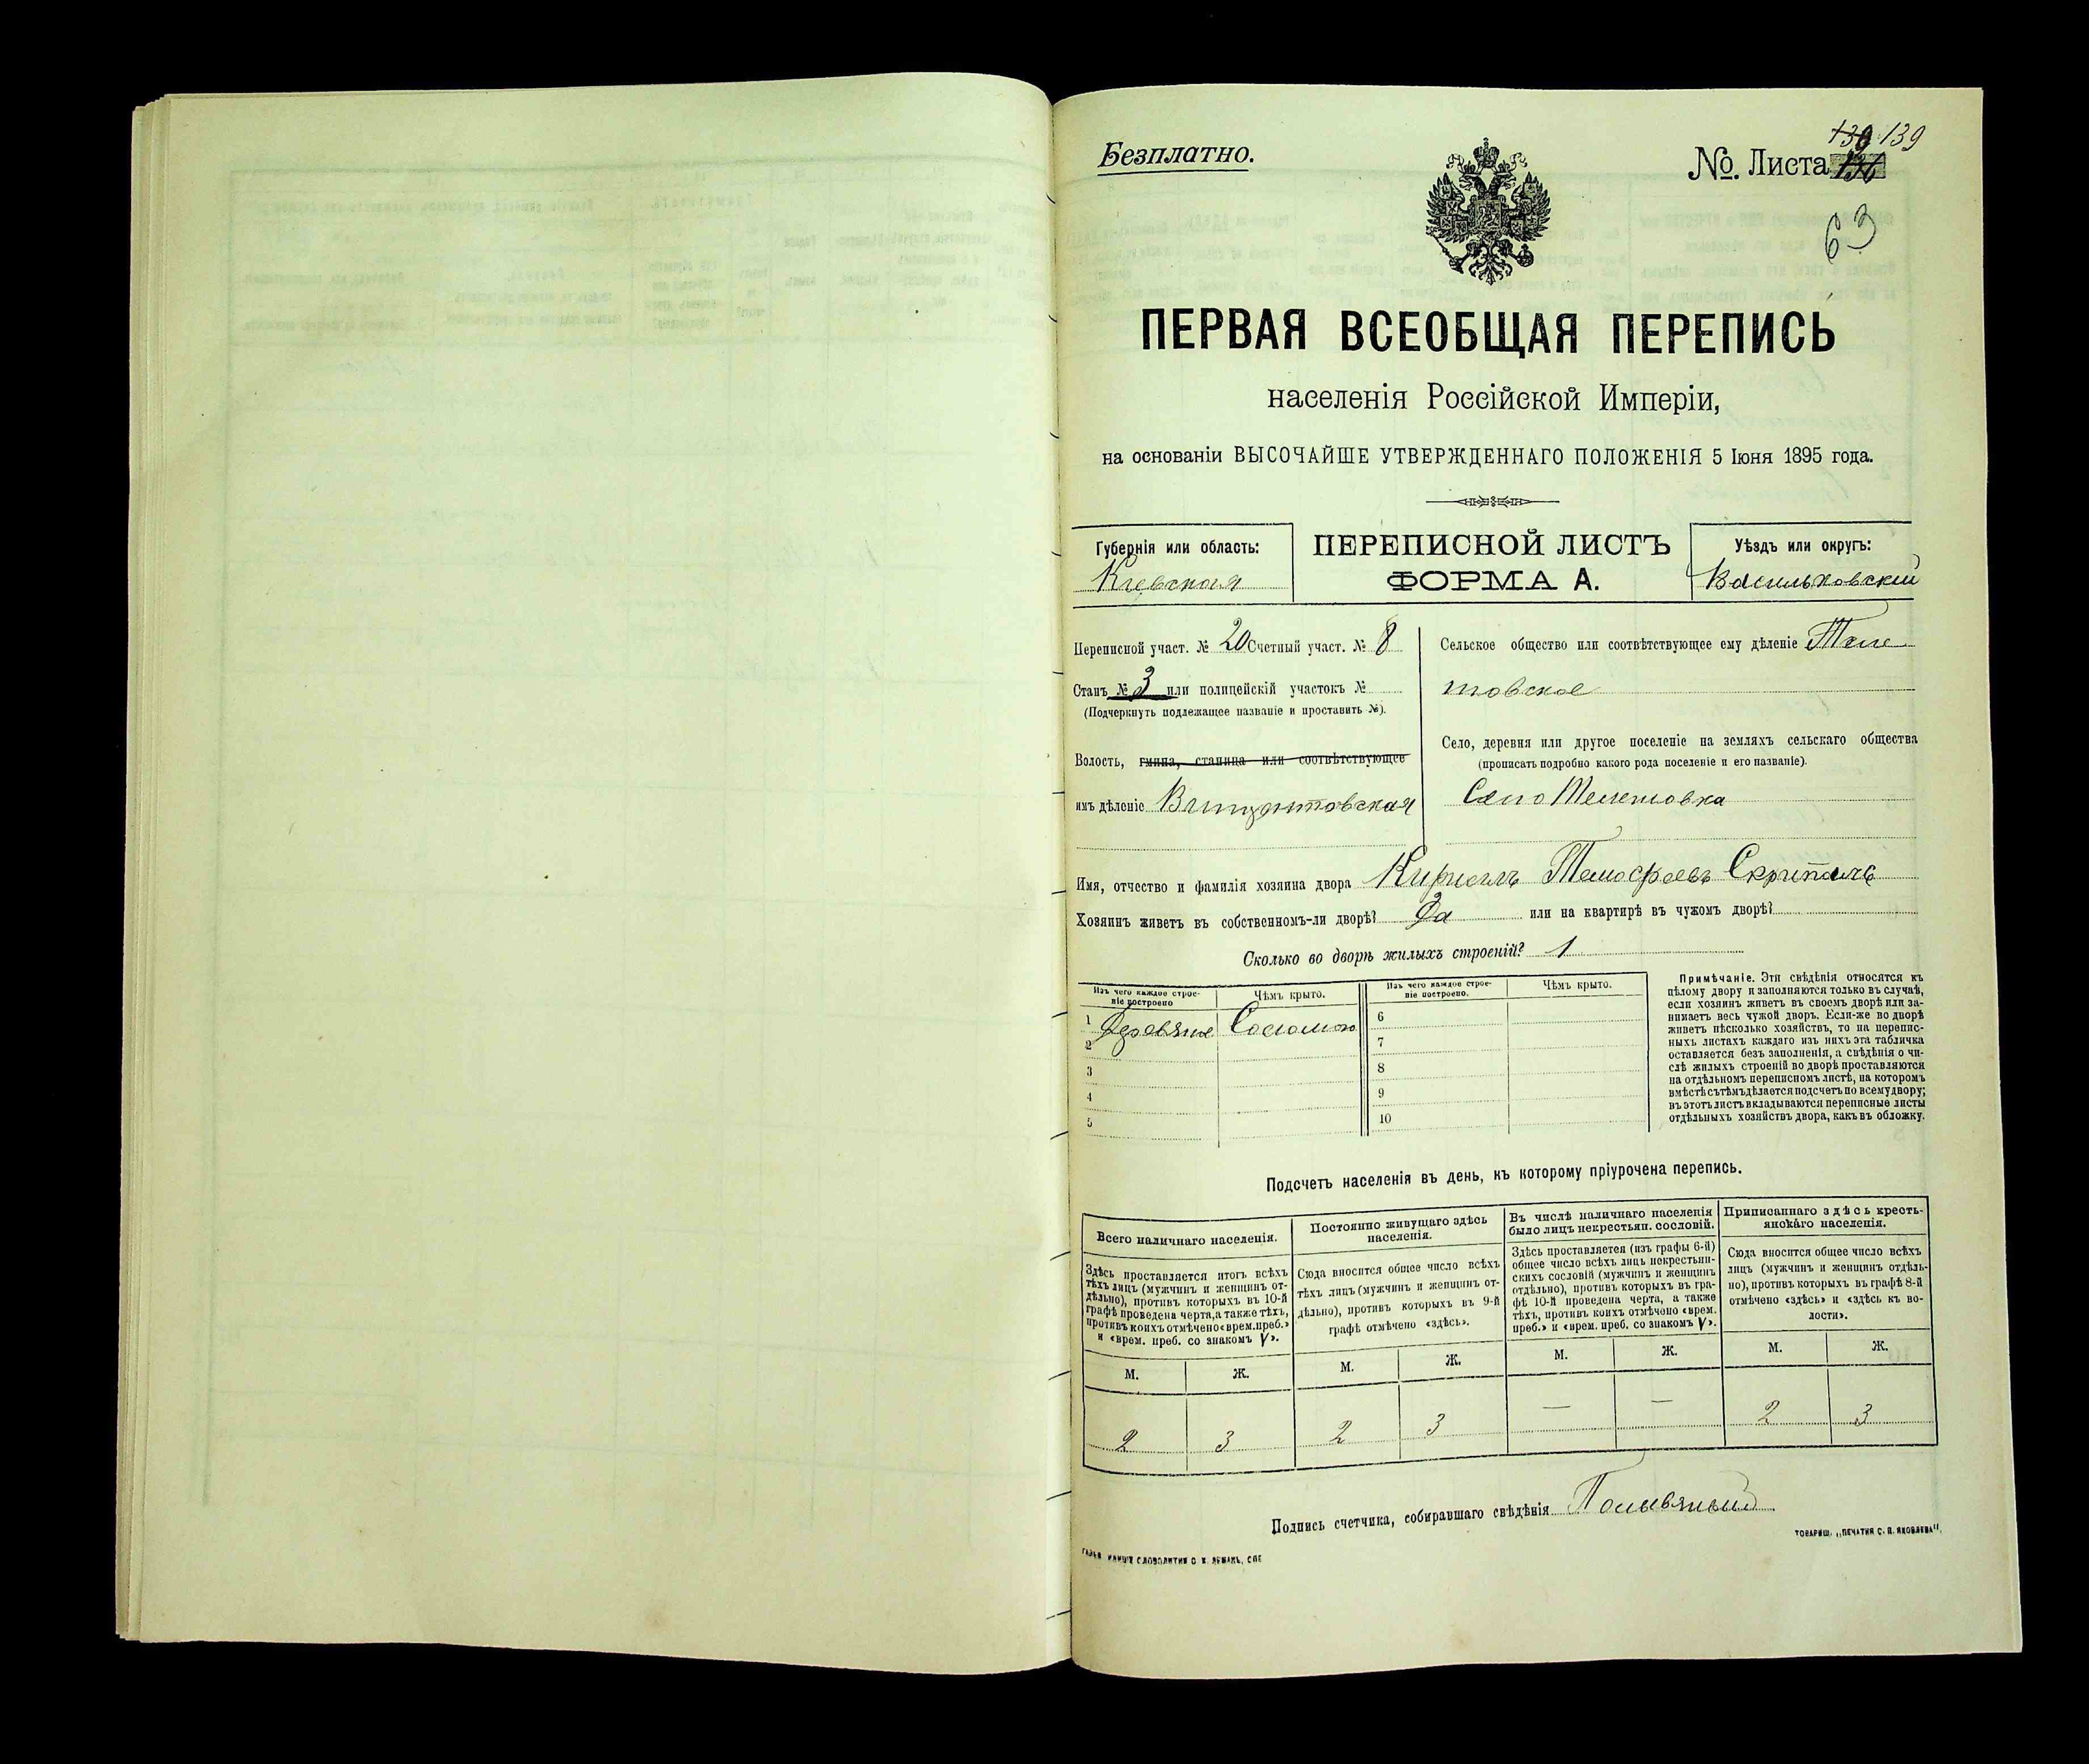 Безплатно.
139 139
№. Листа 136
63
ПЕРВАЯ ВСЕОБЩАЯ ПЕРЕПИСЬ
населенія Россійской Имперіи,
на основаніи ВЫСОЧАЙШЕ УТВЕРЖДЕННАГО ПОЛОЖЕНІЯ 5 Іюня 1895 года.
Губернія или область:
Кіевская
ПЕРЕПИСНОЙ ЛИСТЪ
ФОРМА А.
Уѣздъ или округъ:
Васильковскій
Переписной участ. № 20 Счетный участ. № 8
Станъ № 3 или полицейскій участокъ №
(Подчеркнуть подлежащее названіе и проставить №).
Волость, гмина, станица или соотвѣтствующее
имъ дѣленіе Винцентовская
Сельское общество или соотвѣтствующее ему дѣленіе Теле
товское
Село, деревня или другое поселеніе на земляхъ сельскаго общества
(прописать подробно какого рода поселеніе и его названіе).
Село Телешовка
Имя, отчество и фамилія хозяина двора Кириллъ Тимофеевъ
Хозяинъ живетъ въ собственномъ-ли дворѣ? Да или на квартирѣ въ чужомъ дворѣ?
Сколько во дворѣ жилыхъ строеній? 1
Изъ чего каждое строе-
ніе построено
Чѣмъ крыто.
Изъ чего каждое строе-
ніе построено.
Чѣмъ крыто.
1 Деревяное Соломою 6
2 7
3 8
4 9
5 10
Примѣчаніе. Эти свѣдѣнія относятся къ
цѣлому двору и заполняются только въ случаѣ,
если хозяинъ живетъ въ своемъ дворѣ или за-
нимаетъ весь чужой дворъ. Если-же во дворѣ
живетъ нѣсколько хозяйствъ, то на перепис-
ныхъ листахъ каждаго изъ нихъ эта табличка
оставляется безъ заполненія, а свѣдѣнія о чи-
слѣ жилыхъ строеній во дворѣ проставляются
на отдѣльномъ переписномъ листѣ, на которомъ
вмѣстѣ съ тѣмъ дѣлается подсчетъ по всему двору;
въ этотъ листъ вкладываются переписные листы
отдѣльныхъ хозяйствъ двора, какъ въ обложку.
Подсчетъ населенія въ день, къ которому пріурочена перепись.
Всего наличнаго населенія.
Здѣсь проставляется итогъ всѣхъ
тѣхъ лицъ (мужчинъ и женщинъ от-
дѣльно), противъ которыхъ въ 10-й
графѣ проведена черта, а также тѣхъ,
противъ коихъ отмѣчено «врем. преб.»
и «врем. преб. со знакомъ V».
Постоянно живущаго здѣсь
населенія.
Сюда вносится общее число всѣхъ
тѣхъ лицъ (мужчинъ и женщинъ от-
дѣльно), противъ которыхъ въ 9-й
графѣ отмѣчено «здѣсь».
Въ числѣ наличнаго населенія
было лицъ некрестьян. сословій.
Здѣсь проставляется (изъ графы 6-й)
общее число всѣхъ лицъ некрестьян-
скихъ сословій (мужчинъ и женщинъ
отдѣльно), противъ которыхъ въ гра-
фѣ 10-й проведена черта, а также
тѣхъ, противъ коихъ отмѣчено «врем.
преб.» и «врем. преб. со знакомъ V».
Приписаннаго здѣсь кресть-
янскаго населенія.
Сюда вносится общее число всѣхъ
лицъ (мужчинъ и женщинъ отдѣль-
но), противъ которыхъ въ графѣ 8-й
отмѣчено «здѣсь» и «здѣсь къ во-
лости».
М. Ж. М. Ж. М. Ж. М. Ж.
2 3 2 3 — — 2 3
Подпись счетчика, собиравшаго свѣдѣнія
ТОВАРИЩ. „ПЕЧАТНЯ С. П. ЯКОВЛЕВА“.
СЛОВОЛИТНИ О. И. ЛЕМАНЪ, СПБ